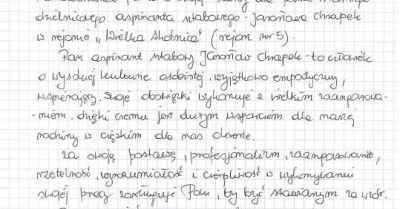 dzielnicowego aspiranta sztabowego Jarosława Chrapek
w rejonie „Wielka Skotnica” (rejon nr 5).
Pan aspirant sztabowy Jarosław Chrapek - to człowiek
o wysokiej kulturze osobistej, wyjątkowo empatyczny,
wspierający. Swoje obowiązki wykonuje z wielkim zaangażowa-
niem, dzięki czemu jest dużym wsparciem dla naszej
rodziny w ciężkim dla nas okresie.
Za swoją postawę, profesjonalizm, zaangażowanie,
rzetelność, wyrozumiałość i cierpliwość w wykonywaniu
swojej pracy zasługuje Pan, by być stawianym za wzór.